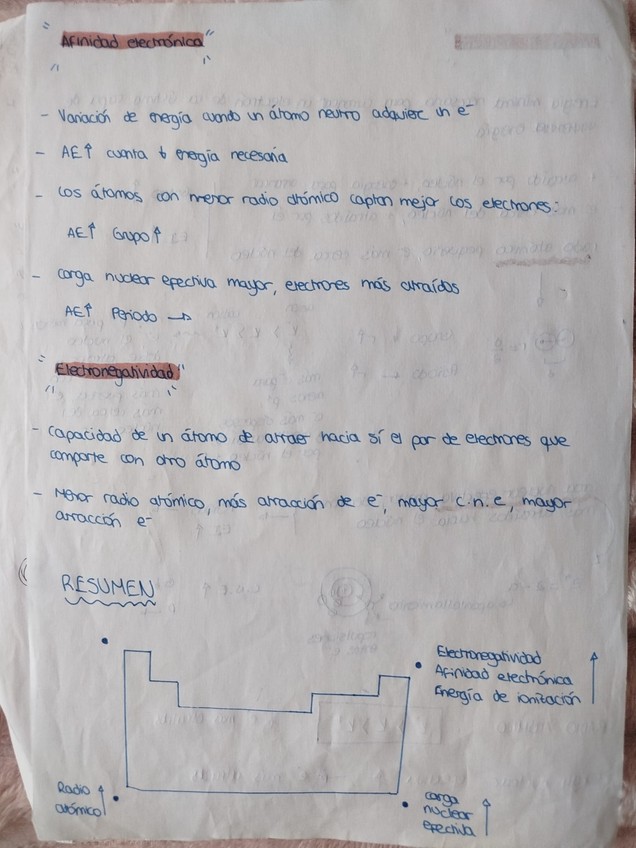 Afinidad electrónica
- Variación de energía cuando un átomo neutro adquiere un e⁻
- AE↑ cuanta + energía necesaria
- Los átomos con menor radio atómico captan mejor los electrones:
AE↑ Grupo↑
- Carga nuclear efectiva mayor, electrones más atraídos
AE↑ Periodo →
Electronegatividad
- Capacidad de un átomo de atraer hacia sí el par de electrones que
comparte con otro átomo
- Menor radio atómico, más atracción de e⁻, mayor c.n.e, mayor
atracción e⁻
RESUMEN
Electronegatividad
Afinidad electrónica
Energía de ionización ↑
Radio ↑
atómico
carga
nuclear ↑
efectiva